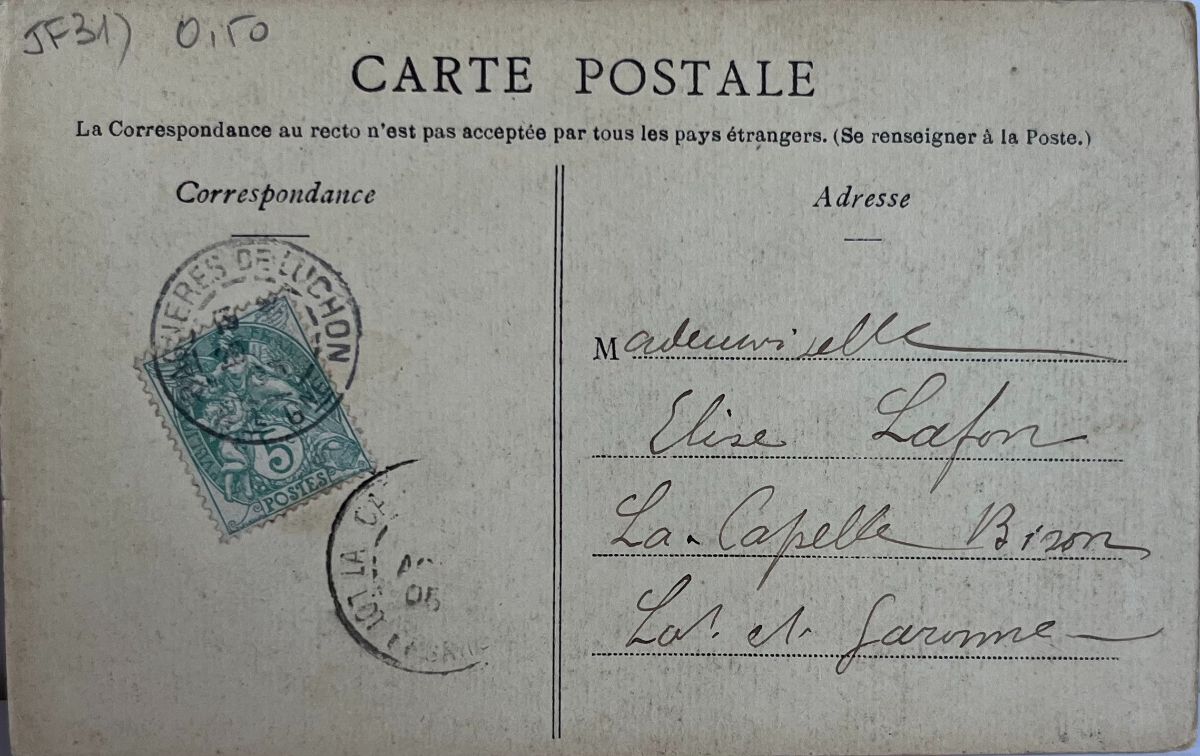 JF31) 0,50
CARTE POSTALE
La Correspondance au recto n'est pas acceptée par tous les pays étrangers. (Se renseigner à la Poste.)
Correspondance
Adresse
BAGNERES DE LUCHON
5
POSTES
LOT
LA
05
Mademoiselle
Elise Lafon
La Capelle Biron
Lot et Garonne